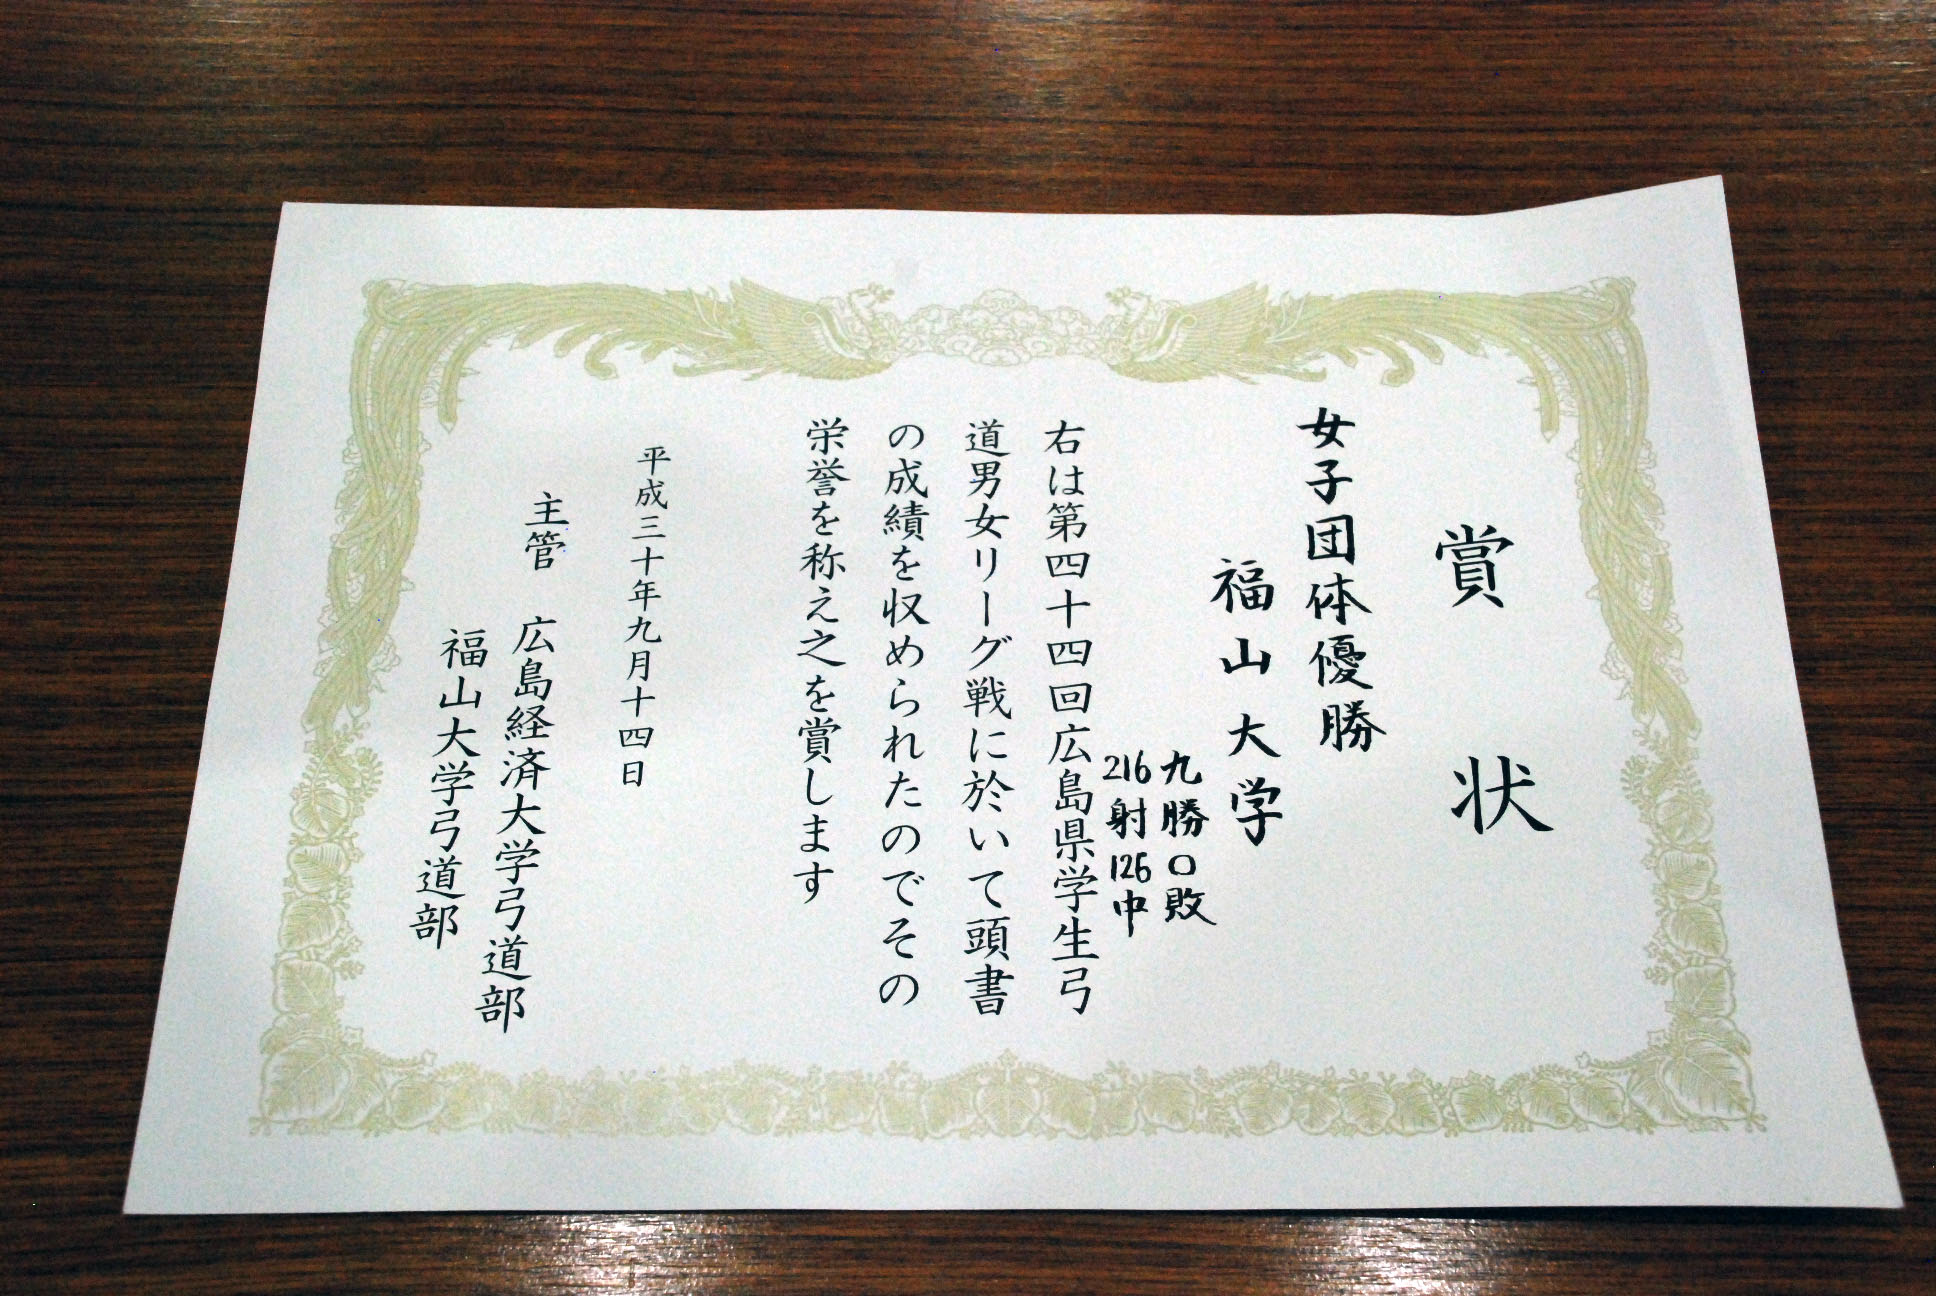 賞状
女子団体優勝
福山大学
九勝〇敗
216射126中
右は第四十四回広島県学生弓
道男女リーグ戦に於いて頭書
の成績を収められたのでその
栄誉を称え之を賞します
平成三十年九月十四日
主管 広島経済大学弓道部
福山大学弓道部